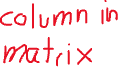 column in
matrix